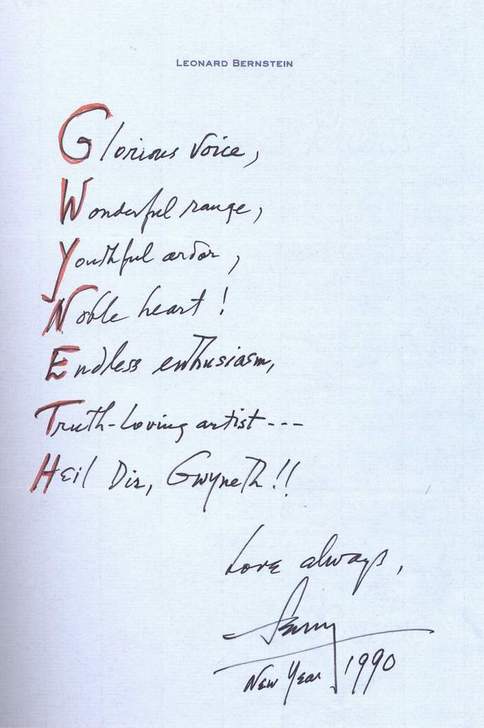 LEONARD BERNSTEIN
Glorious voice,
Wonderful range,
Youthful ardor,
Noble heart!
Endless enthusiasm,
Truth-loving artist---
Heil Dir, Gwyneth!!
Love always,
Lenny
New Year 1990